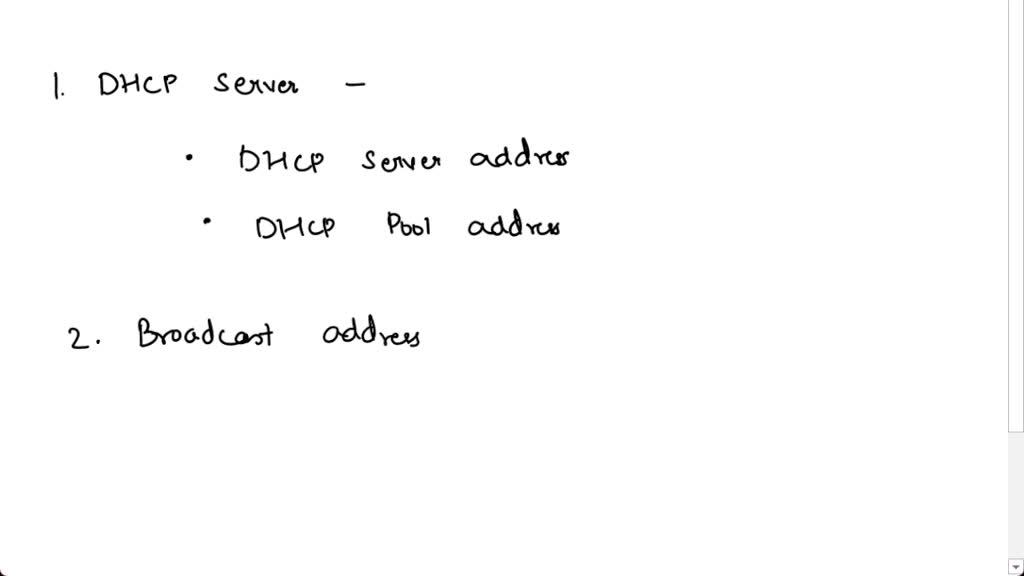 1. DHCP Server –
• DHCP Server address
• DHCP Pool address
2. Broadcast address